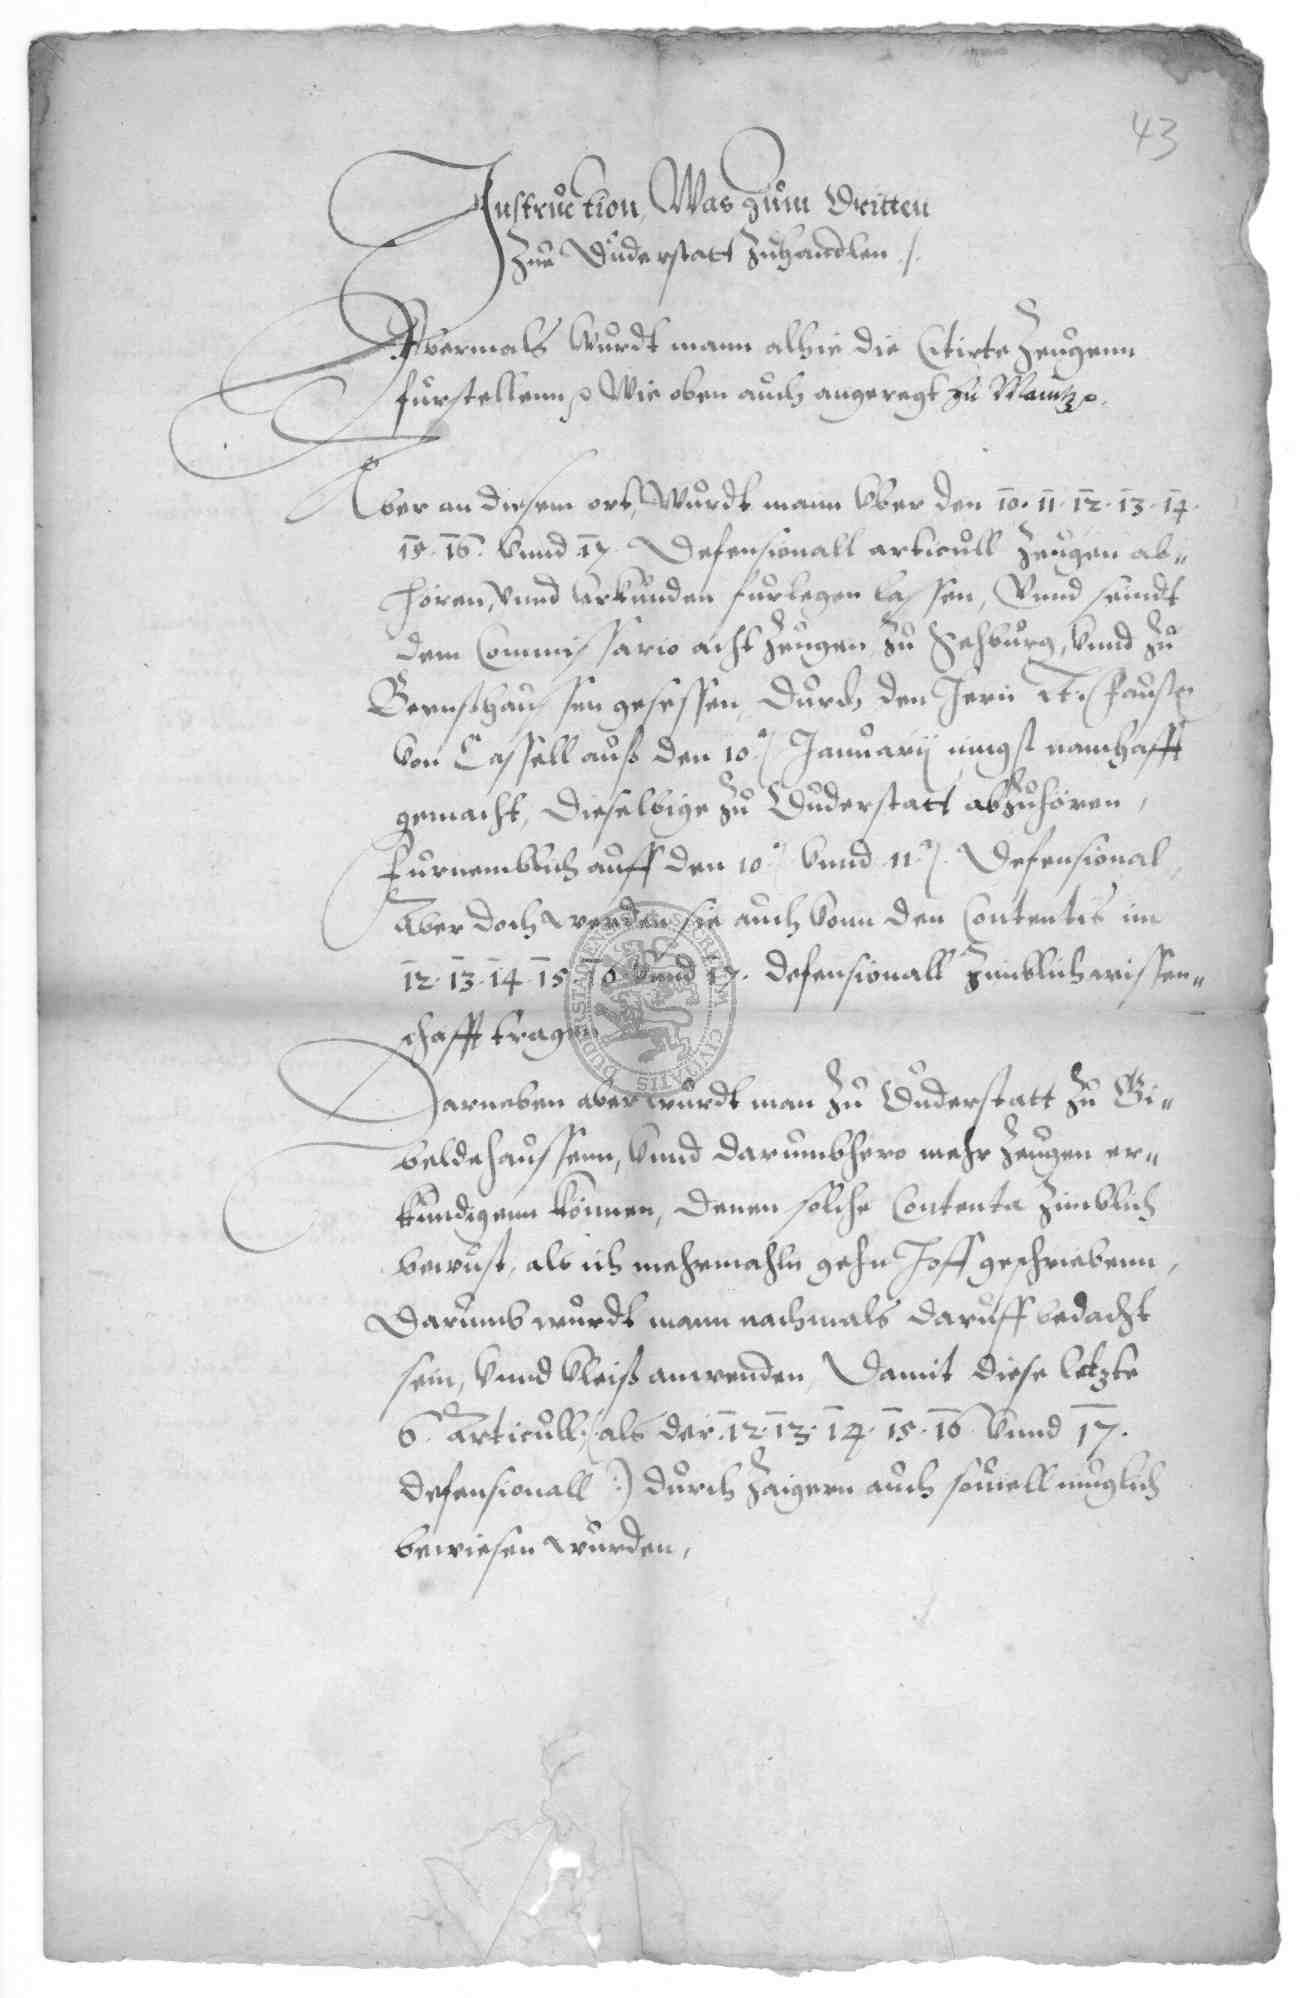 43
Instruction, Was zum Dritten
Zue Duderstatt Zuhandlen /.
Abermals wurdt mann alhie die Citirte Zeugenn
furstellenn, Wie oben auch angeregt zu Maintz.
Aber an diesem ort, Wurdt mann vber den 10. 11. 12. 13. 14.
15. 16. vnnd 17. Defensionall articull Zeugen ab„
hören, vnnd vrkunden furlegen lassen, Vnnd seindt
dem Commissario acht Zeugen, zu Sehburg, vnnd zu
Bernshaussen gesessen, durch den Hern Faust
von Cassell auß den 10. Januarij jungst namhafft
gemacht, dieselbige zu Duderstatt abzuhören,
furnemblich auff den 10. vnnd 11. Defensional,
Aber doch werden sie auch vonn den Contentis im
12. 13. 14. 15. 16. vnnd 17. defensionall zimblich wissen„
schafft tragen
Darneben aber wurdt man zu Duderstatt zu Gi„
beldehaussenn, vnnd darumbhero mehr Zeugen er„
kundigenn können, denen solche Contenta zimblich
bewust, als ich mehrmahln gehn Hoff geschriebenn,
Darumb wurdt mann nachmals daruff bedacht
sein, vnnd vleiß anwenden, Damit diese letzte
6. Articull, (als der 12. 13. 14. 15. 16. vnnd 17.
defensionall :) durch Zeugen auch souiell muglich
bewiesen wurden,